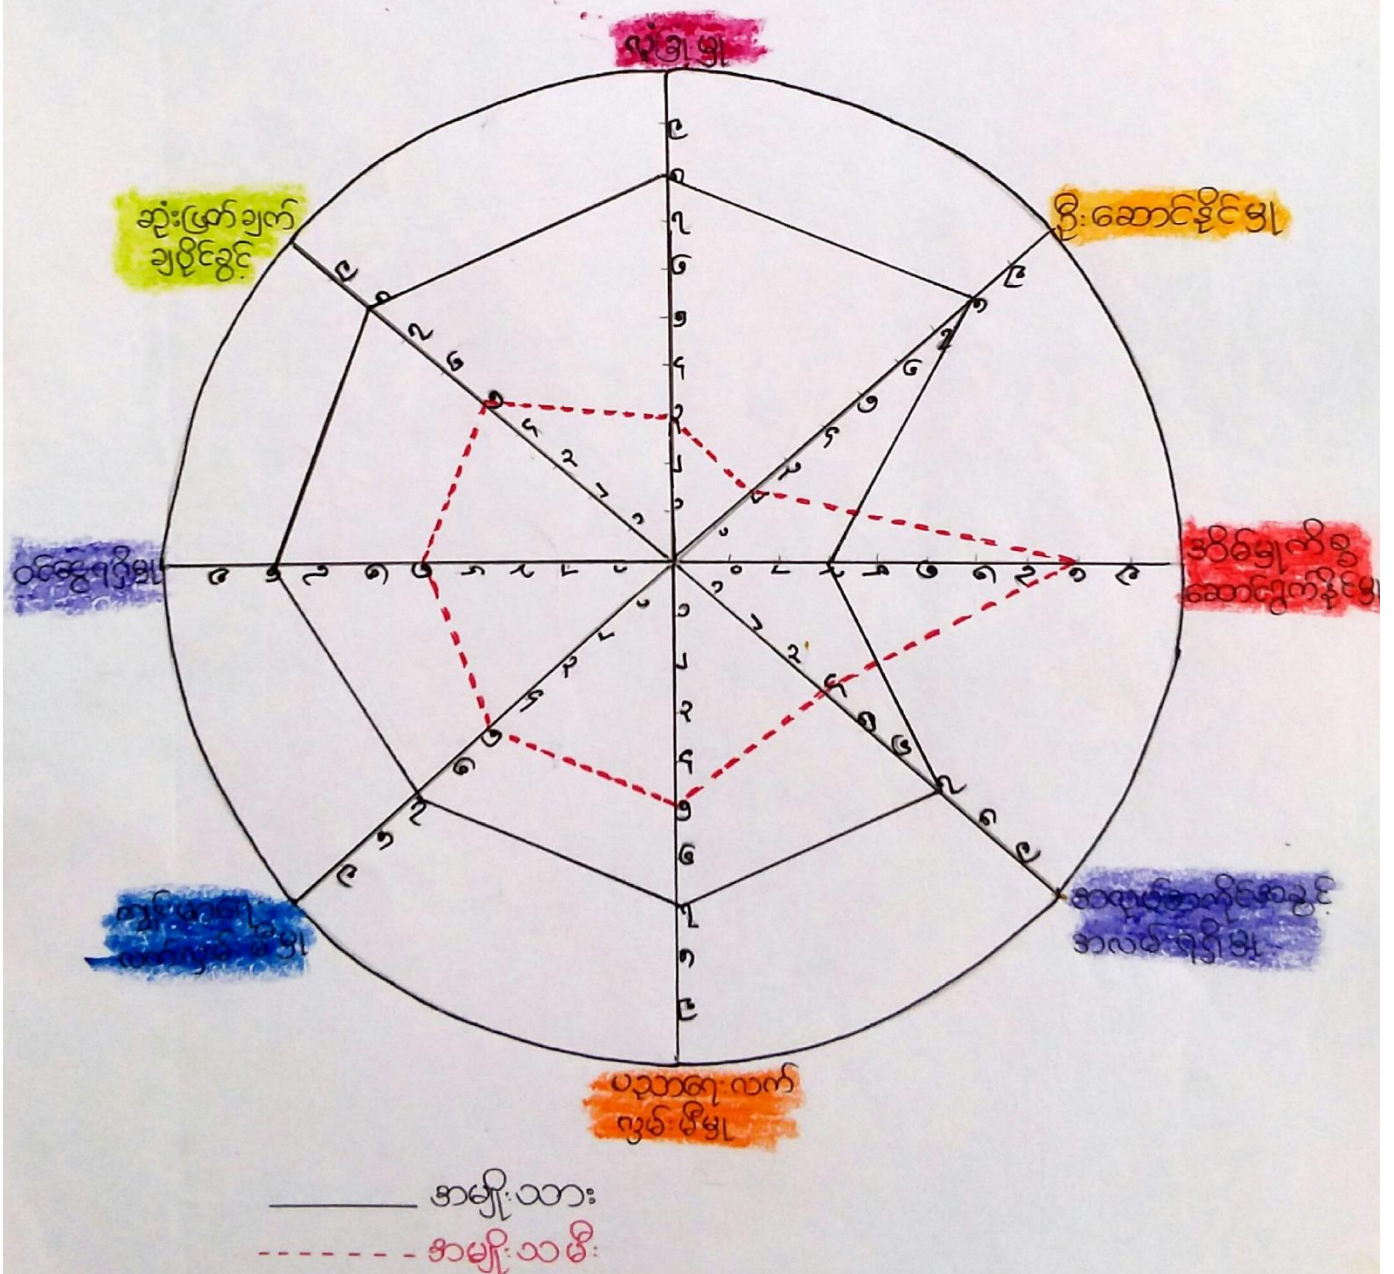 လုံခြုံမှု
ဦးဆောင်နိုင်မှု
အိမ်မှုကိစ္စ
ဆောင်ရွက်နိုင်မှု
အလုပ်အကိုင်အခွင့်
အလမ်းရရှိမှု
ပညာရေးလက်
လှမ်းမီမှု
ကျန်းမာရေး
လက်လှမ်းမီမှု
ဝင်ငွေရရှိမှု
ဆုံးဖြတ်ချက်
ချပိုင်ခွင့်
အမျိုးသား
အမျိုးသမီး